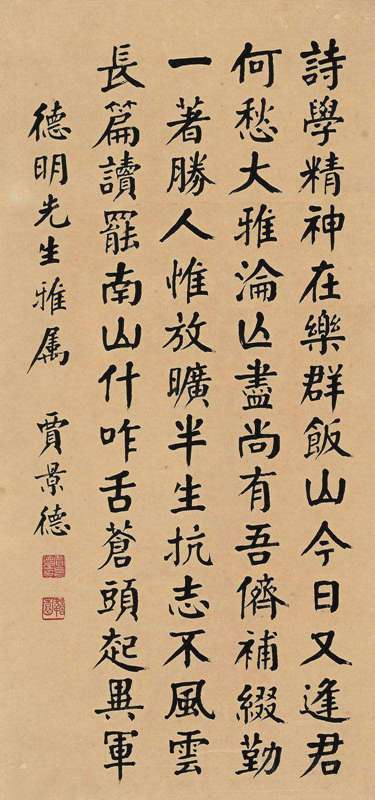 詩學精神在樂群飯山今日又逢君
何愁大雅淪亾盡尚有吾儕補綴勤
一著勝人惟放曠半生抗志不風雲
長篇讀罷南山什咋舌蒼頭起異軍
德明先生雅属　賈景德